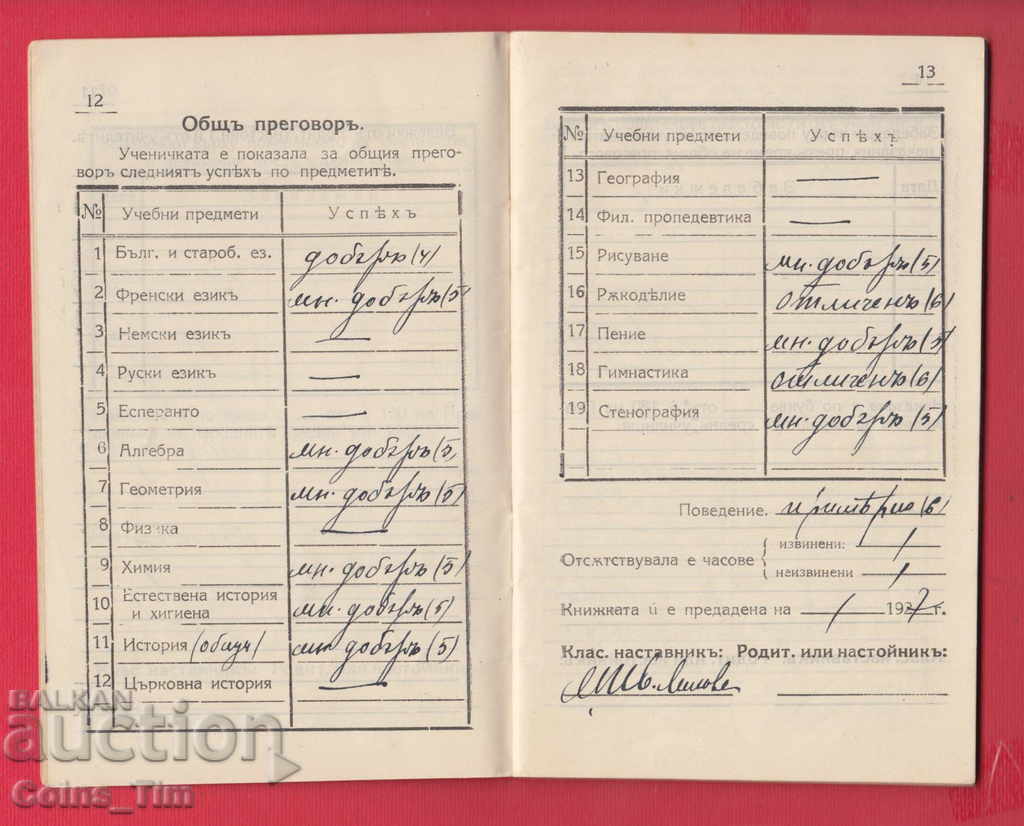 12
Общъ преговоръ.
Ученичката е показала за общия прего-
воръ следниятъ успѣхъ по предметитѣ.
№ Учебни предмети Успѣхъ
1 Бълг. и староб. ез. добъръ (4)
2 Френски езикъ мн. добъръ (5)
3 Немски езикъ —
4 Руски езикъ —
5 Есперанто —
6 Алгебра мн. добъръ (5)
7 Геометрия мн. добъръ (5)
8 Физика —
9 Химия мн. добъръ (5)
10 Естествена история
и хигиена мн. добъръ (5)
11 История (обща) мн. добъръ (5)
12 Църковна история —
13
№ Учебни предмети Успѣхъ
13 География —
14 Фил. пропедевтика —
15 Рисуване мн. добъръ (5)
16 Рѫкодѣлие отличенъ (6)
17 Пение мн. добъръ (5)
18 Гимнастика отличенъ (6)
19 Стенография мн. добъръ (5)
Поведение. примѣрно (6)
Отсѫтствувала е часове { извинени: /
неизвинени /
Книжката ѝ е предадена на / 192 г.
Клас. наставникъ: Родит. или настойникъ:
BALKAN
auction
Coins_Tim